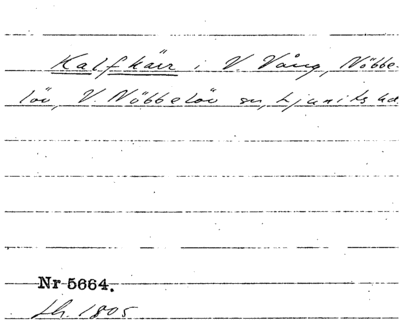 Kalfkärr i V. Vång, Nöbbe-
löv, V. Nöbbelöv sn, Ljunits hd
Nr 5664.
Lh. 1805